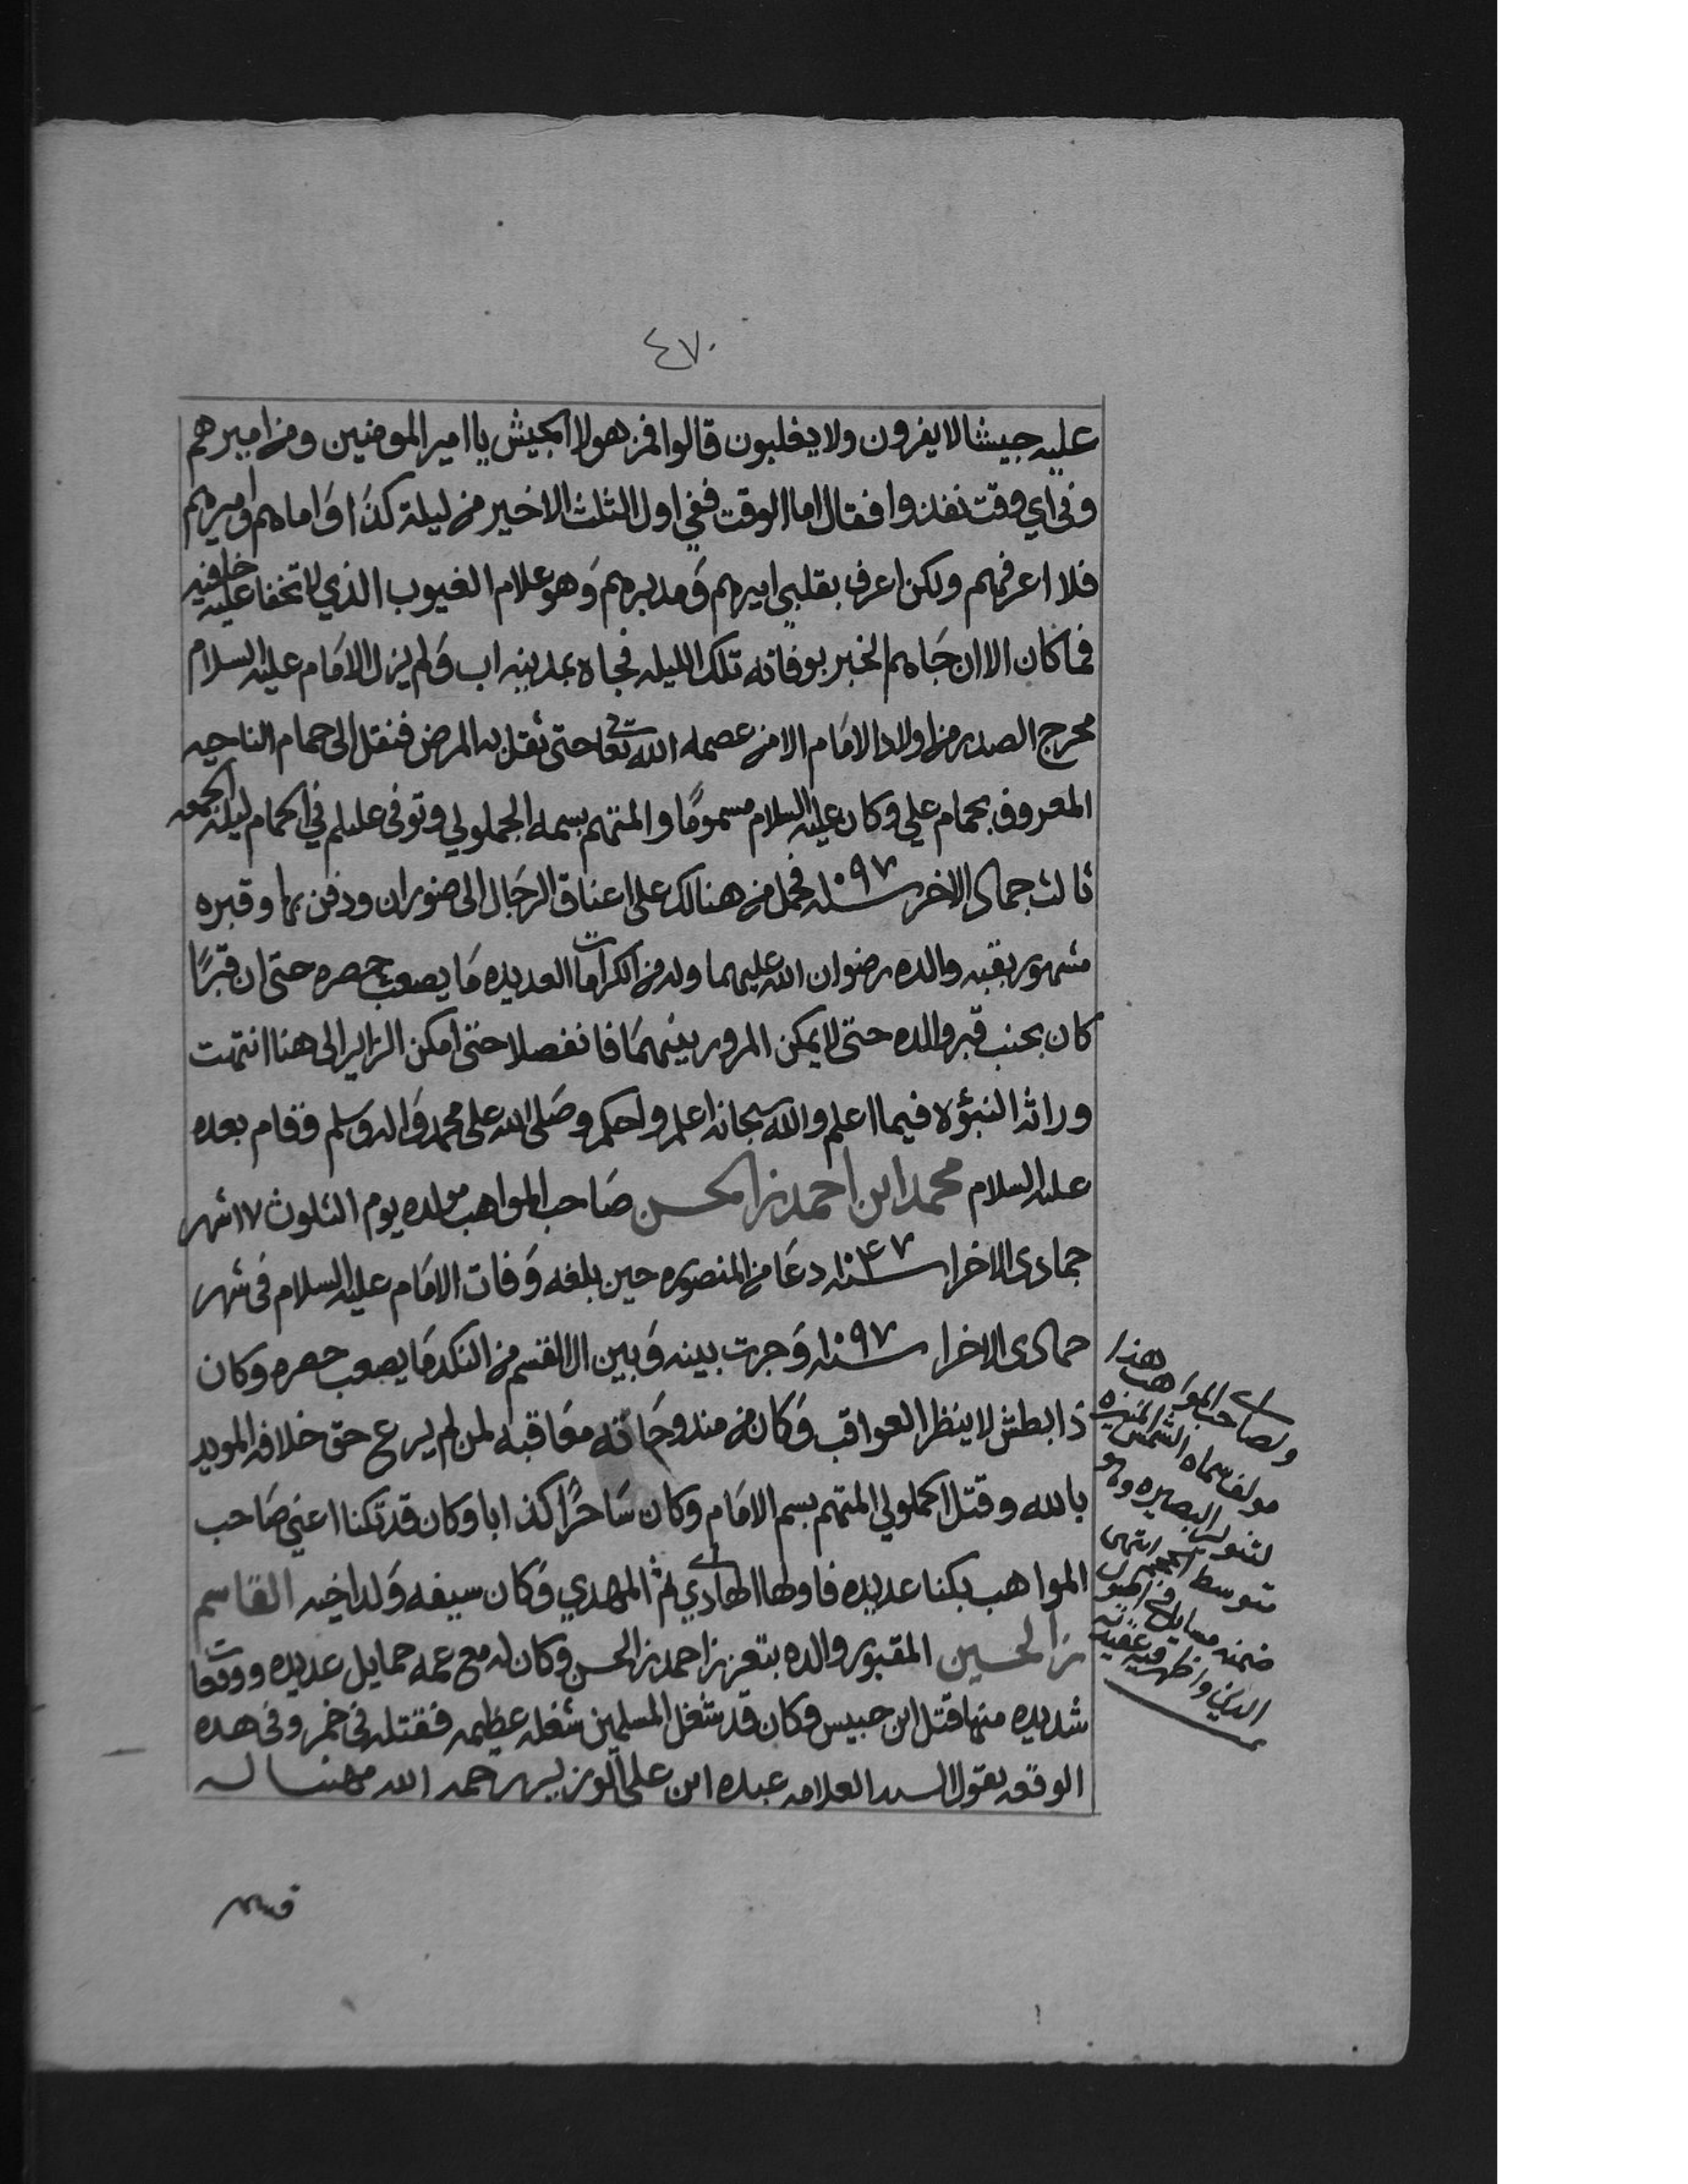 ٤٧٠
عليه جيشا لا يفرون ولا يغلبون قالوا فمن هولا الجيش يا امير المومنين ومن اميرهم
وفي اي وقت نفذوا فقال اما الوقت ففي اول الثلث الاخير من ليلة كذا واماهم واميرهم
فلا اعرفهم ولكن اعرف بقلبي اميرهم ومدبرهم وهو علام الغيوب الذي لا تخفا عليه خافيه
فما كان الا ان جاهم الخبر بوفاته تلك الليله فجاه بمدينه اب ولم يزل الامام عليه السلام
محرج الصدر من اولاد الامام الا من عصمه الله تعا حتى ثقل به المرض فنقل الى حمام الناحيه
المعروف بحمام علي وكان عليه السلام مسموما والمتهم بسمه الجملولي وتوفى عليلم في الحمام ليلة الجمعه
ثالث جمادى الاخر سنة ١٠٩٧ فحمل من هنالك على اعناق الرجال الى ضوران ودفن بها وقبره
مشهور بقبه والده رضوان الله عليهما وله من الكرامات العديده ما يصعب حصره حتى ان قبرًا
كان بجنب قبر والده حتى لا يمكن المرور بينهما فانفصلا حتى امكن الزاير الى هنا انتهت
وراثه النبؤه فيما اعلم والله سبحانه اعلم واحكم وصلى الله على محمد واله وسلم وقام بعده
عليه السلام محمد ابن احمد بن الحسن صاحب المواهب مولده يوم الثلوث ١٧ شهر
جمادى الاخرا سنة ١٠٤٧ دعا من المنصوره حين بلغه وفات الامام عليه السلام في شهر
جمادى الاخرا سنة ١٠٩٧ وجرت بينه وبين ال القسم من النكد ما يصعب حصره وكان
ذا بطش لا ينظر العواقب وكان من مندوحاته معاقبه لمن لم يرع حق خلافه المويد
بالله وقتل الجملولي المتهم بسم الامام وكان ساحرًا كذابا وكان قد تكنا اعني صاحب
المواهب بكنا عديده فاولها الهادي ثم المهدي وكان سيفه ولد اخيه القاسم
بن الحسين المقبور والده بتعز بن احمد بن الحسن وكان له مع عمه حمايل عديده ووقعات
شديده منها قتل ابن حبيس وكان قد شغل المسلمين شغله عظيمه فقتله في خمر وفي هذه
الوقعه يقول السيد العلامه عبده ابن علي الوزير رحمه الله مهنيا له
ولصاحب المواهب هذا
مولف سماه الشمس المنيره
البصيره وهو
متوسط الحجم انتهى
ضمنه مسايل في اصول
الدين واظهر فيه عقيدته